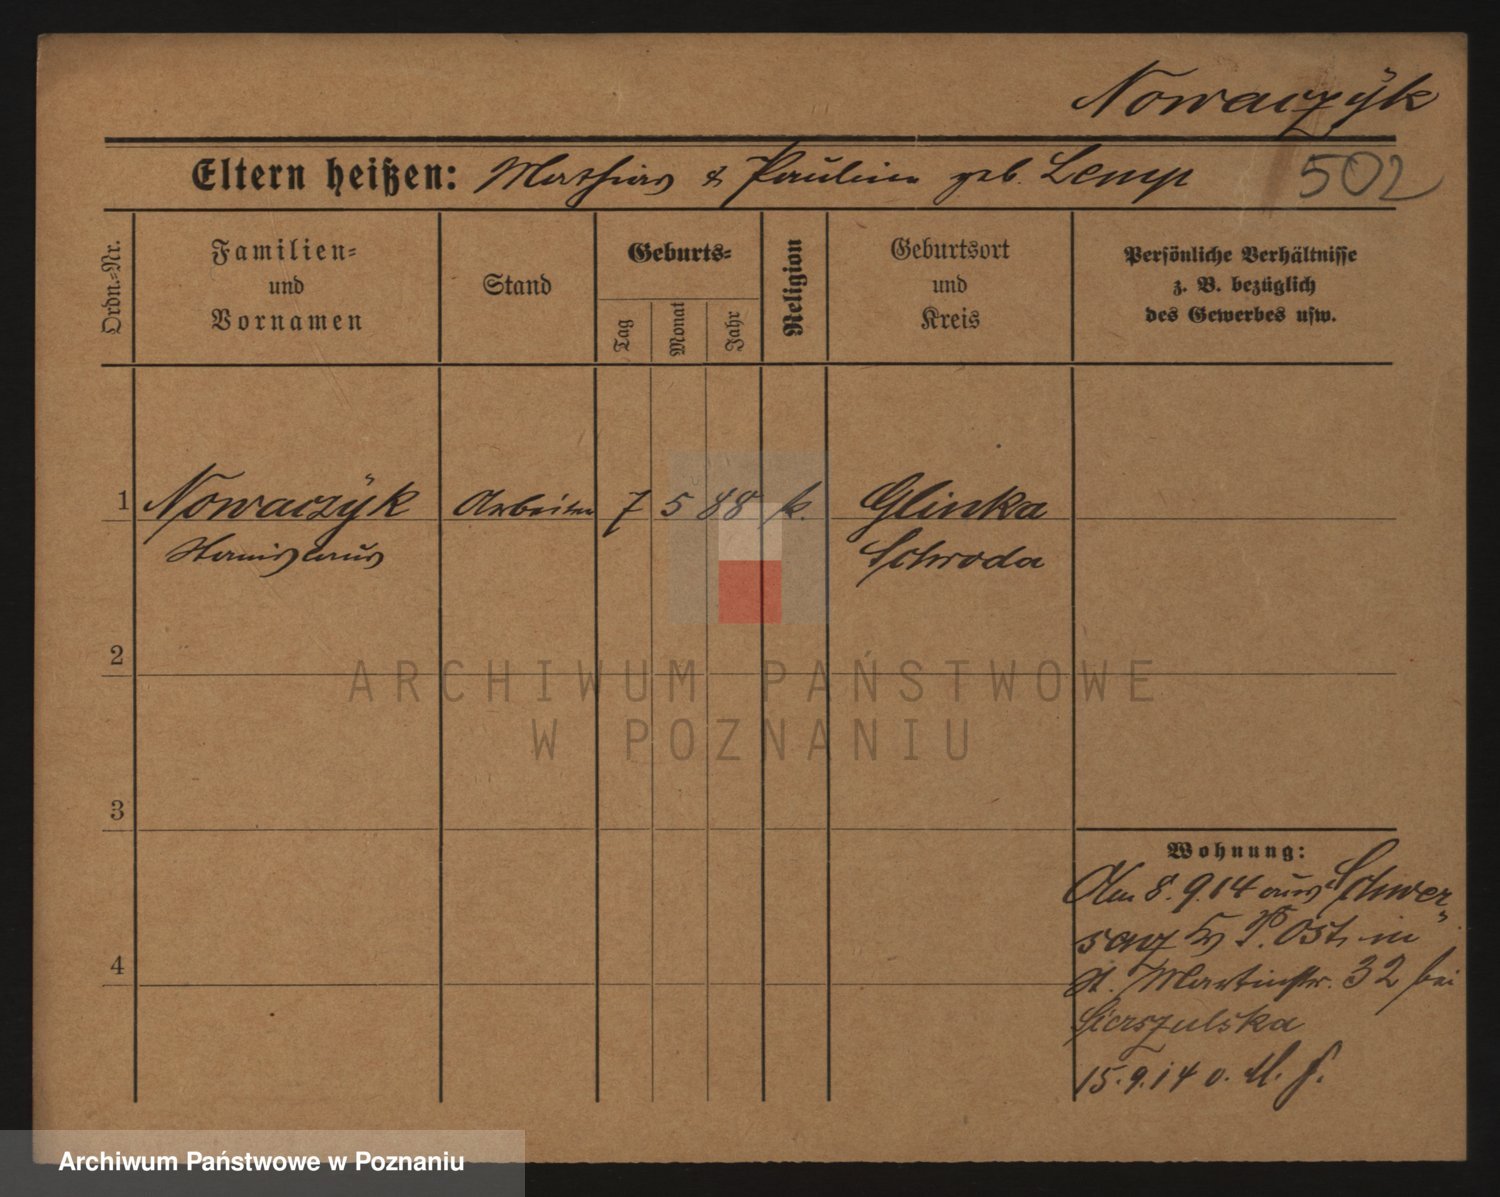 Nowaczÿk
Eltern heißen: Mathias & Pauline geb. Lemp
502
Ordn.-Nr.
Familien-
und
Vornamen
Stand
Geburts-
Tag
Monat
Jahr
Religion
Geburtsort
und
Kreis
Persönliche Verhältnisse
z. B. bezüglich
des Gewerbes usw.
1 Nowaczÿk Arbeiter 7 5 88 k. Glinka
Stanislaus Schroda
2
3
4
Wohnung:
Am 8.9.14 aus Schwer-
senz P. Ost, in
St. Martinstr. 32 bei
Sierszulska
15.9.14 v.
ARCHIWUM PAŃSTWOWE
W POZNANIU
Archiwum Państwowe w Poznaniu